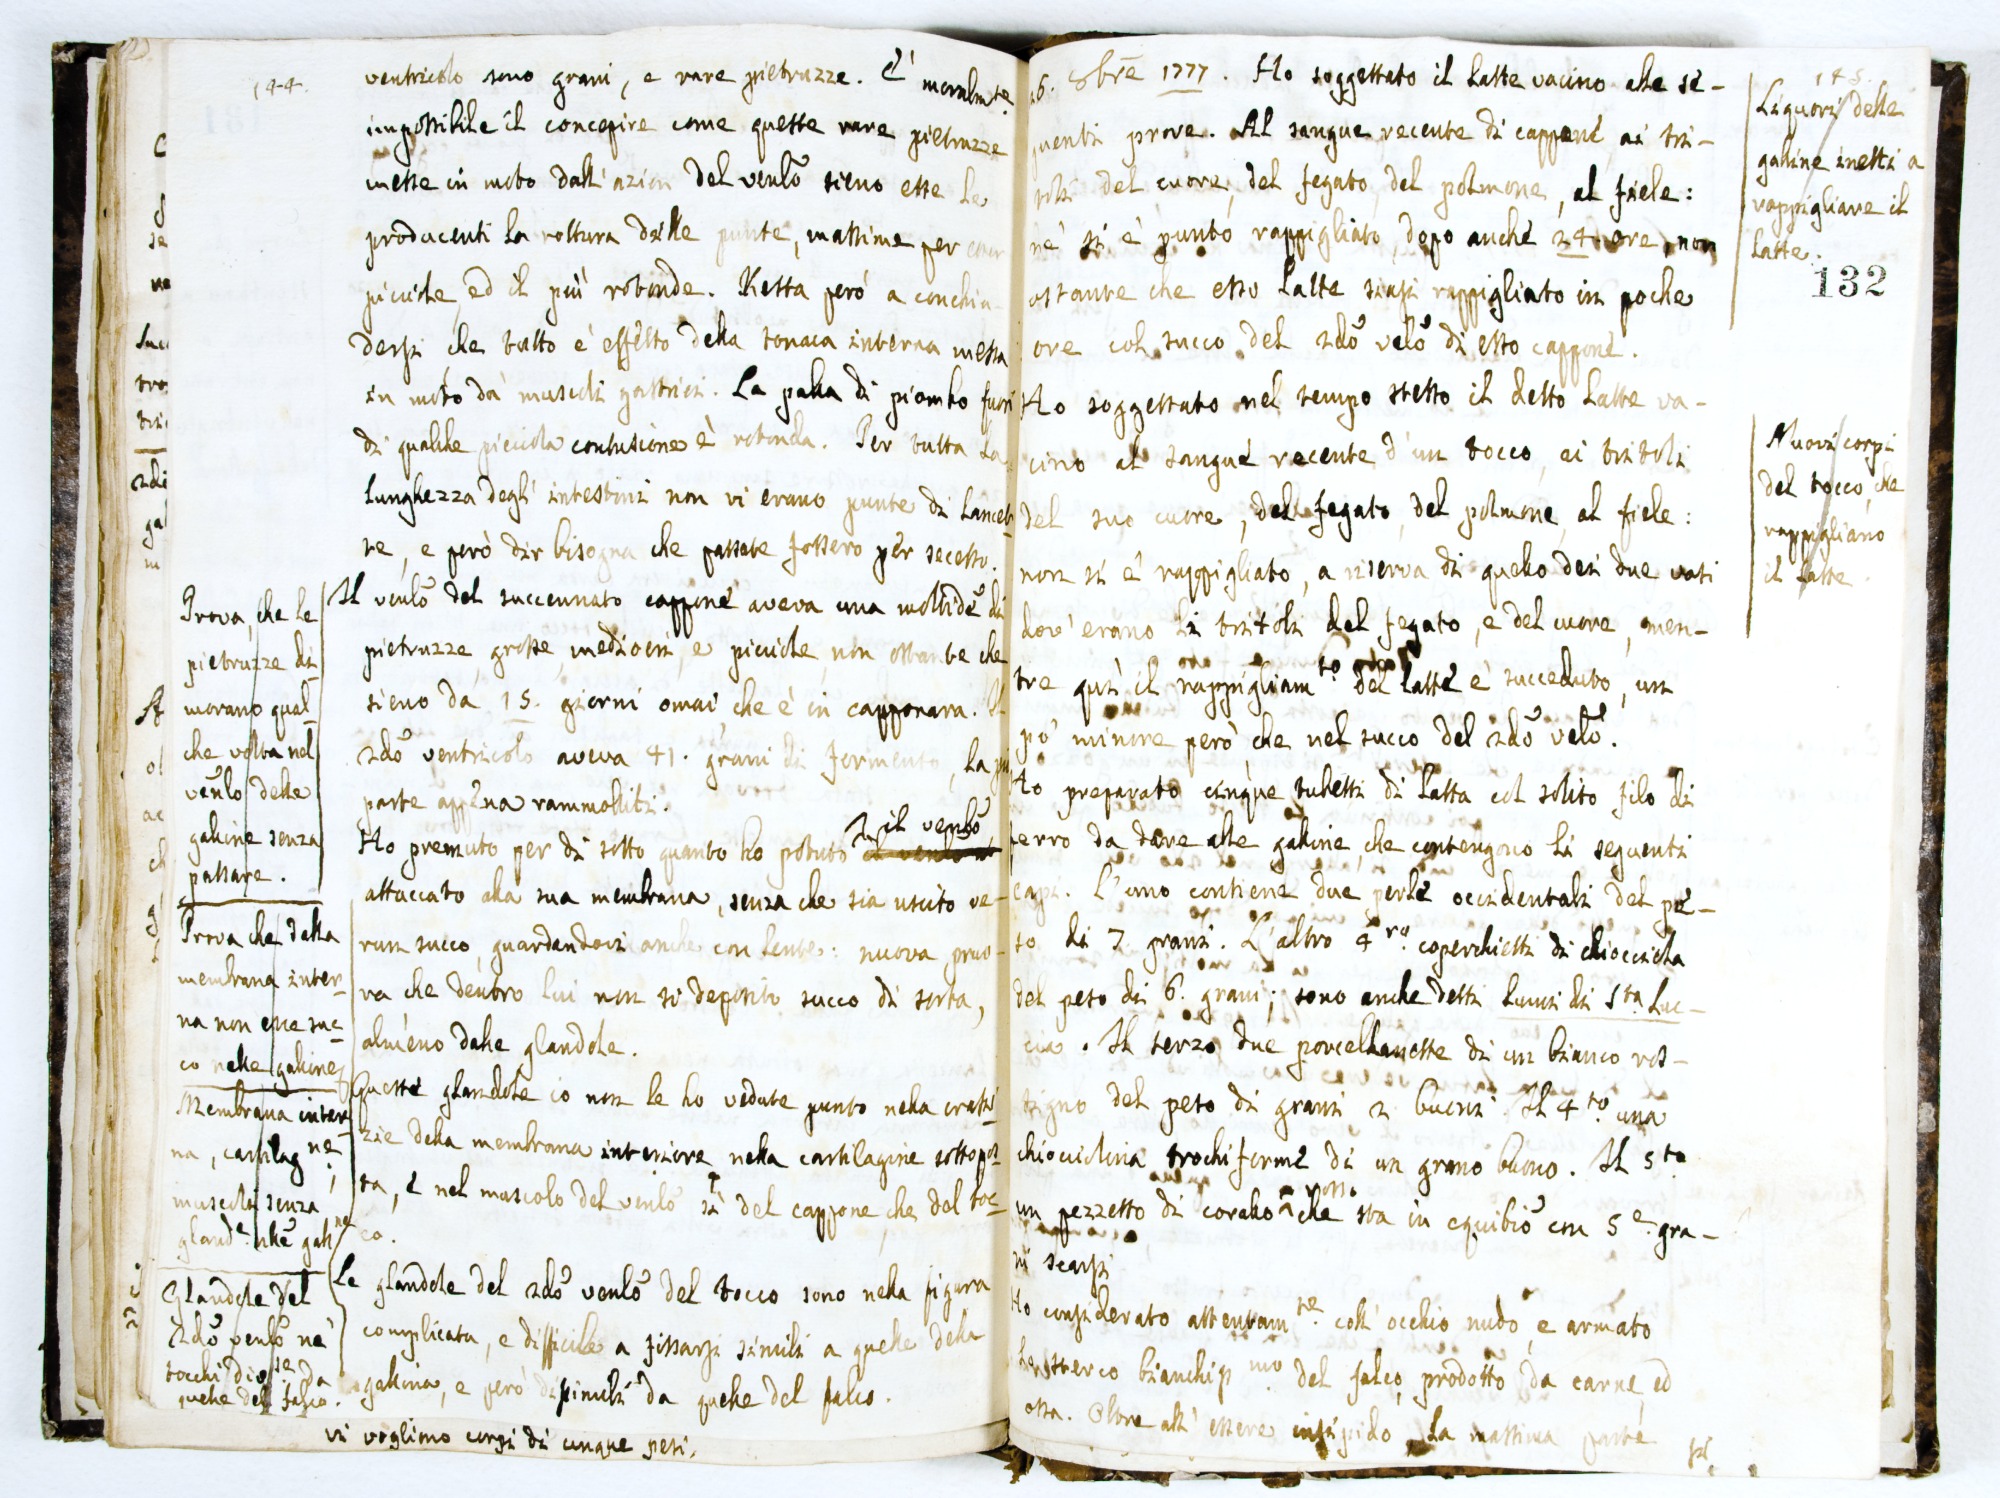 144.
ventricolo sono grani, e rare pietruzze. E' moralmte
impossibile il concepire come queste rare pietruzze
messe in moto dall' azion del venlo sieno esse le
producenti la rottura delle punte, massime per esser
picciole, ed il più rotonde. Resta però a conchiu-
dersi che tutto è effetto della tonaca interna messa
in moto da' muscoli gastrici. La palla di piombo fuori
di qualche picciola contusione è rotonda. Per tutta la
lunghezza degl' intestini non vi erano punte di lancet-
te, e però dir bisogna che passate fossero per secesso.
Il venlo del succennato cappone aveva una moltidē di
pietruzze grosse, mediocri, e picciole, non ostante che
sieno da 15. giorni omai che è in capponara. Il
2do ventricolo aveva 41. grani di formento, la più
parte appena rammolliti.
Ho premuto per di sotto quanto ho potuto il venlo
attaccato alla sua membrana, senza che sia uscito ve-
run succo, guardandovi anche con lente: nuova pruo-
va che dentro lui non si deposita succo di sorta,
almeno dalle glandole.
Queste glandole io non le ho vedute punto nella crassi-
zie della membrana interiore nella cartilagine sottopos-
ta, e nel muscolo del venlo sì del cappone che del toc-
co.
Le glandole del 2do venlo del tocco sono nella figura
complicata, e difficile a fissarsi simili a quelle della
gallina, e però dissimili da quelle del falco.
vi vogliono corpi di cinque pesi.
Prova, che le
pietruzze di-
morano qual-
che volta nel
venlo delle
galline senza
passare.
Prova che dalla
membrana inter-
na non esce suc-
co nelle galline
Membrana inter-
na, cartilagne,
muscolo senza
glande nelle gallne
Glandole del
2do venlo ne'
tocchi diverse da
quelle del falco.
26. 8bre 1777. Ho soggettato il latte vacino alle se-
guenti prove. Al sangue recente di cappone, ai tri-
toli del cuore, del fegato, del polmone, al fiele:
nè si è punto rappigliato, dopo anche 24 ore, non
ostante che esso latte siasi rappigliato in poche
ore col succo del 2do venlo di esso cappone.
Ho soggettato nel tempo stesso il detto latte va-
cino al sangue recente d'un tocco, ai tritoli
del suo cuore, del fegato, del polmone, al fiele:
non si è rappigliato, a riserva di quello dei due vasi
dov' erano li tritoli del fegato, e del cuore, men-
tre qui il rappigliamto del latte è succeduto, un
po' minore però che nel succo del 2do venlo.
Ho preparato cinque tubetti di latta col solito filo di
ferro da dare alle galline, che contengono li seguenti
capi. L'uno contiene due perle occidentali del pe-
so di 7 grani. L'altro 4ro coperchietti di chiocciola
del peso di 6. grani; sono anche detti lumi di Sta Luc-
cia. Il terzo due porcellanette di un bianco ros-
signo del peso di grani 2 buoni. Il 4to una
chiocciolina trochiforme di un grano buono. Il 5to
un pezzetto di corallo rosso che sta in equibio con 5e gra-
ni scarsi
Ho considerato attentamte coll' occhio nudo, e armato
lo sterco bianchissmo del falco, prodotto da carne, ed
ossa. Oltre all' essere insipido, la massima parte
145.
Liquori delle
galline inetti a
rappigliare il
latte.
132
Nuovi corpi
del tocco, che
rappigliano
il latte.